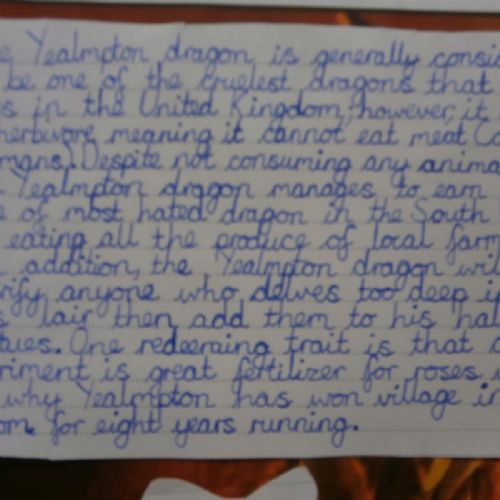 e Yealmpton dragon is generally consi
be one of the cruelest dragons that
s in the United Kingdom, however, it
herbivore meaning it cannot eat meat (o
mans). Despite not consuming any anima
Yealmpton dragon manages to earn
e of most hated dragon in the South
eating all the produce of local farm
addition, the Yealmpton dragon wil
rify anyone who delves too deep i
s lair then add them to his hal
tues. One redeeming trait is that
riment is great fertilizer for roses
why Yealmpton has won village in
om for eight years running.